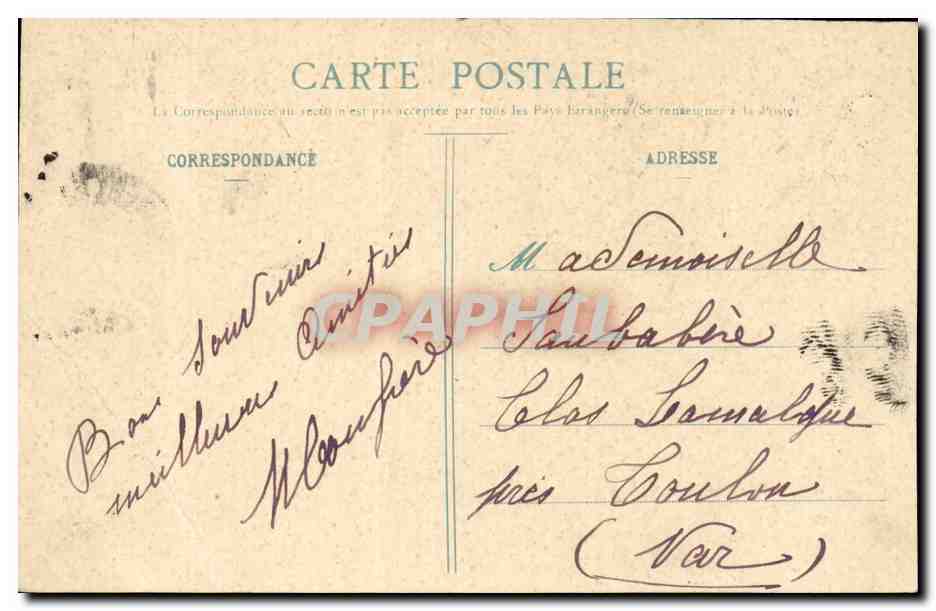 CARTE POSTALE
La Correspondance au recto n'est pas acceptée par tous les Pays Etrangers (Se renseigner à la Poste)
CORRESPONDANCE
Bons souvenirs
meilleures amitiés
ADRESSE
Mademoiselle
Saubabère
Clos Lamalgue
près Toulon
(Var)
CPAPHIL